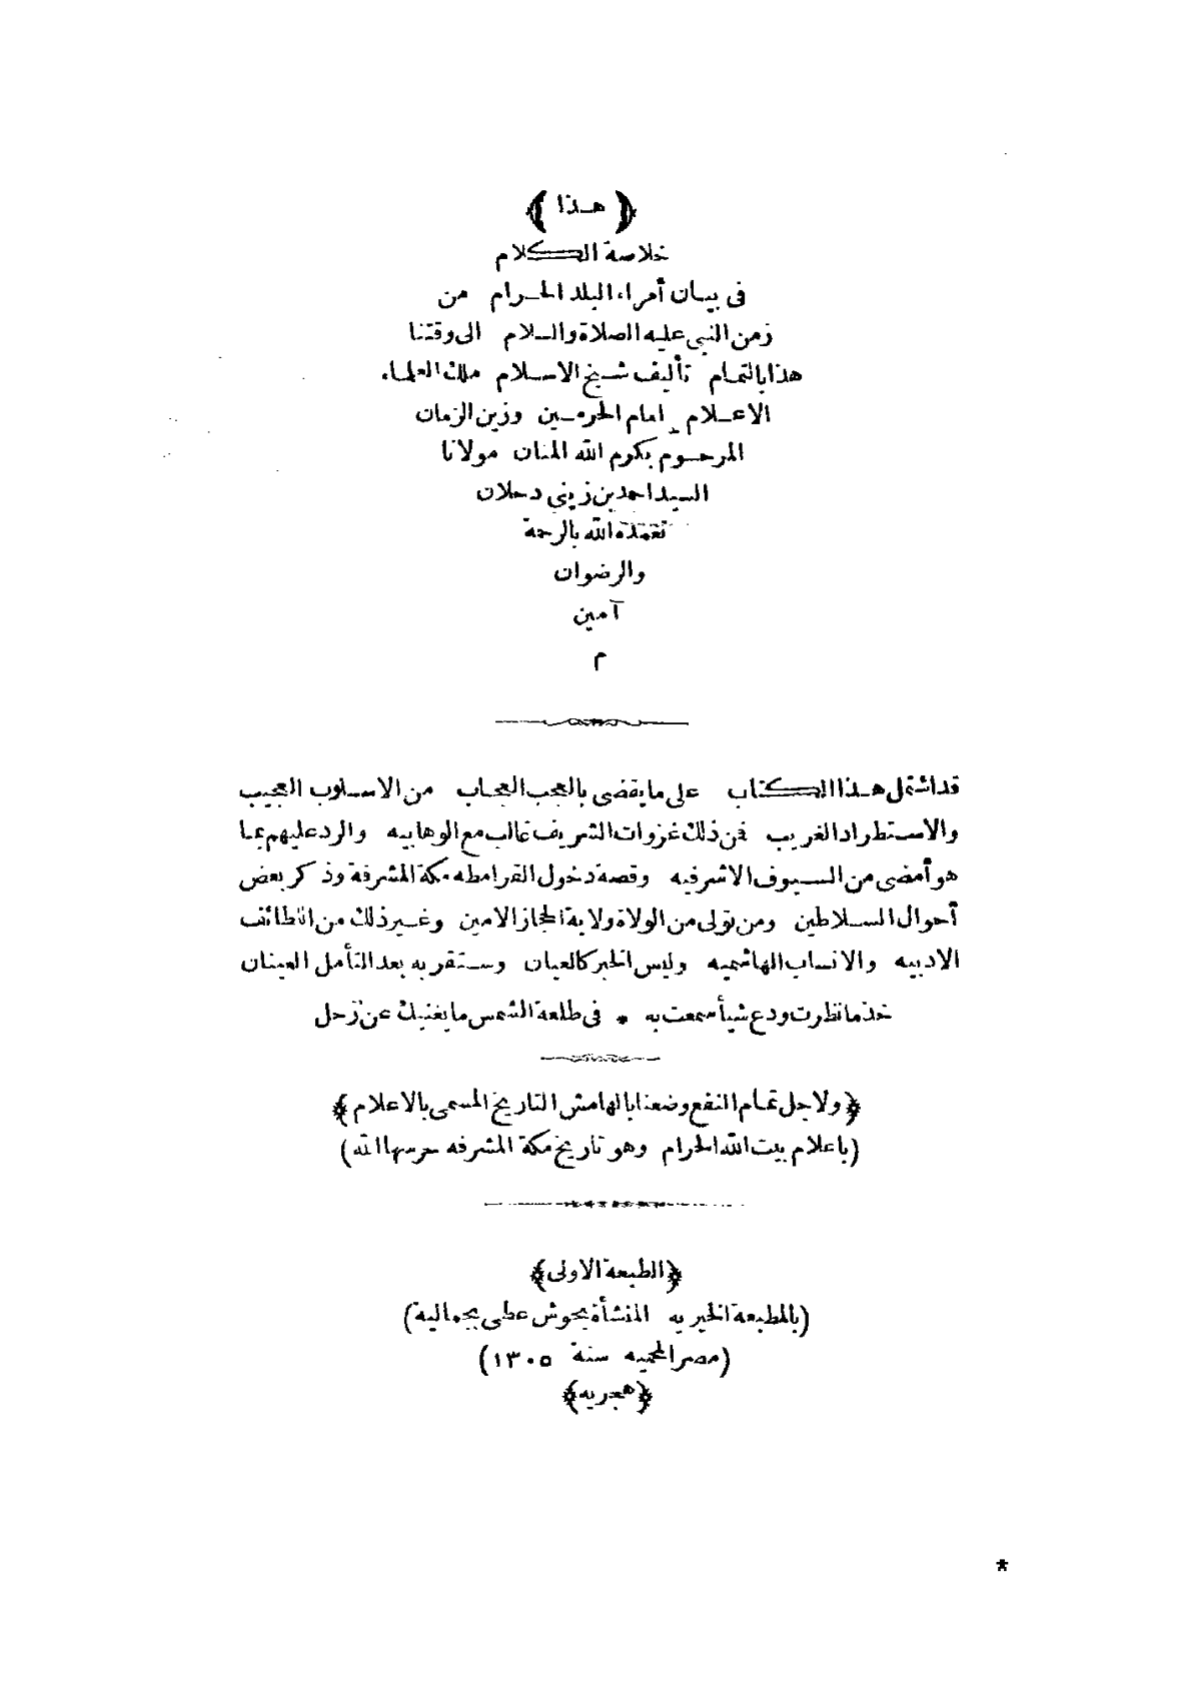 ﴿ هذا ﴾
خلاصة الكلام
فى بيان أمراء البلد الحرام من
زمن النبى عليه الصلاة والسلام الى وقتنا
هذا بالتمام تأليف شيخ الاسلام ملك العلماء
الاعلام امام الحرمين وزين الزمان
المرحوم بكرم الله المنان مولانا
السيد احمد بن زينى دحلان
تغمده الله بالرحمة
والرضوان
آمين
م
قد اشتمل هذا الكتاب على ما يقضى بالعجب العجاب من الاسلوب العجيب
والاستطراد الغريب فمن ذلك غزوات الشريف غالب مع الوهابيه والرد عليهم بما
هو أمضى من السيوف الاشرفيه وقصة دخول القرامطه مكة المشرفة وذكر بعض
أحوال السلاطين ومن تولى من الولاة ولاية الحجاز الامين وغير ذلك من اللطائف
الادبيه والانساب الهاشميه وليس الخبر كالعيان وستقر به بعد التأمل العينان
خذ ما نظرت ودع شيأ سمعت به * فى طلعة الشمس ما يغنيك عن زحل
﴿ ولاجل تمام النفع وضعنا بالهامش التاريخ المسمى بالاعلام ﴾
(باعلام بيت الله الحرام وهو تاريخ مكة المشرفه حرسها الله)
﴿ الطبعة الاولى ﴾
(بالمطبعة الخيريه المنشأة بحوش عطى بجمالية)
(مصر المحميه سنة ١٣٠٥)
﴿ هجريه ﴾
*